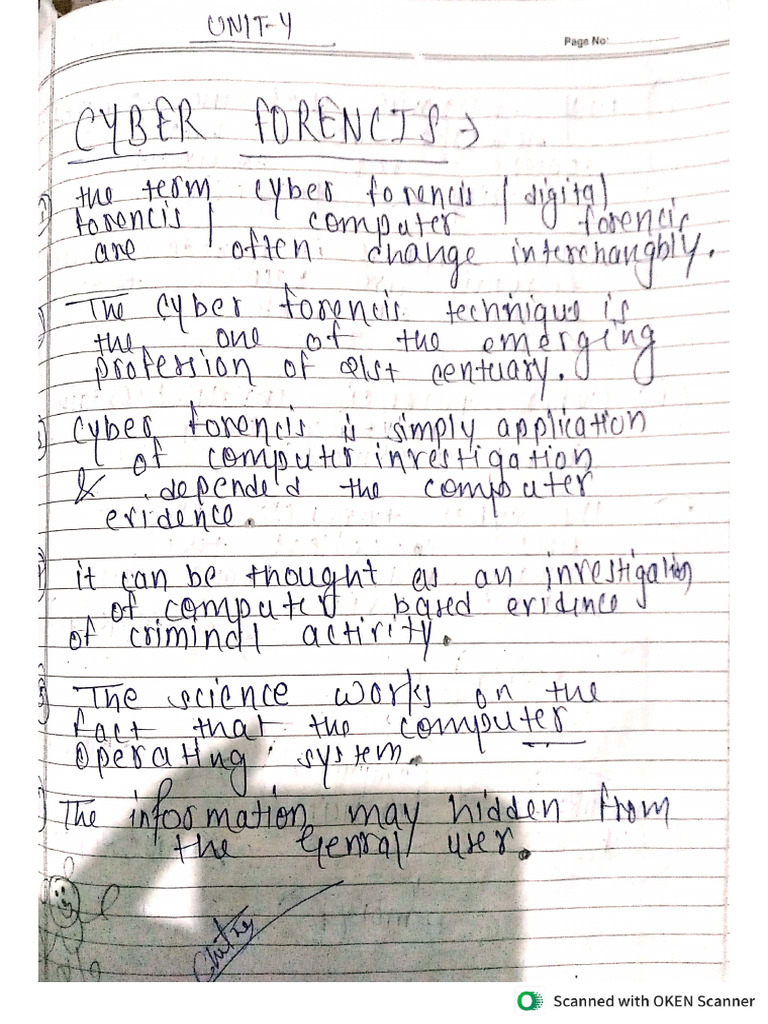 UNIT-4
Page No:
CYBER FORENCIS →
the term cyber forencis / digital
forencis / computer forencis
are often change interchangbly.
The cyber forencis technique is
the one of the emerging
profession of 21st centuary.
Cyber forencis is simply application
of computer investigation
& depended the computer
evidence.
it can be thought as an investigation
of computer based evidence
of criminal activity.
The science works on the
fact that the computer
operating system.
The information may hidden from
the Genral user.
Scanned with OKEN Scanner